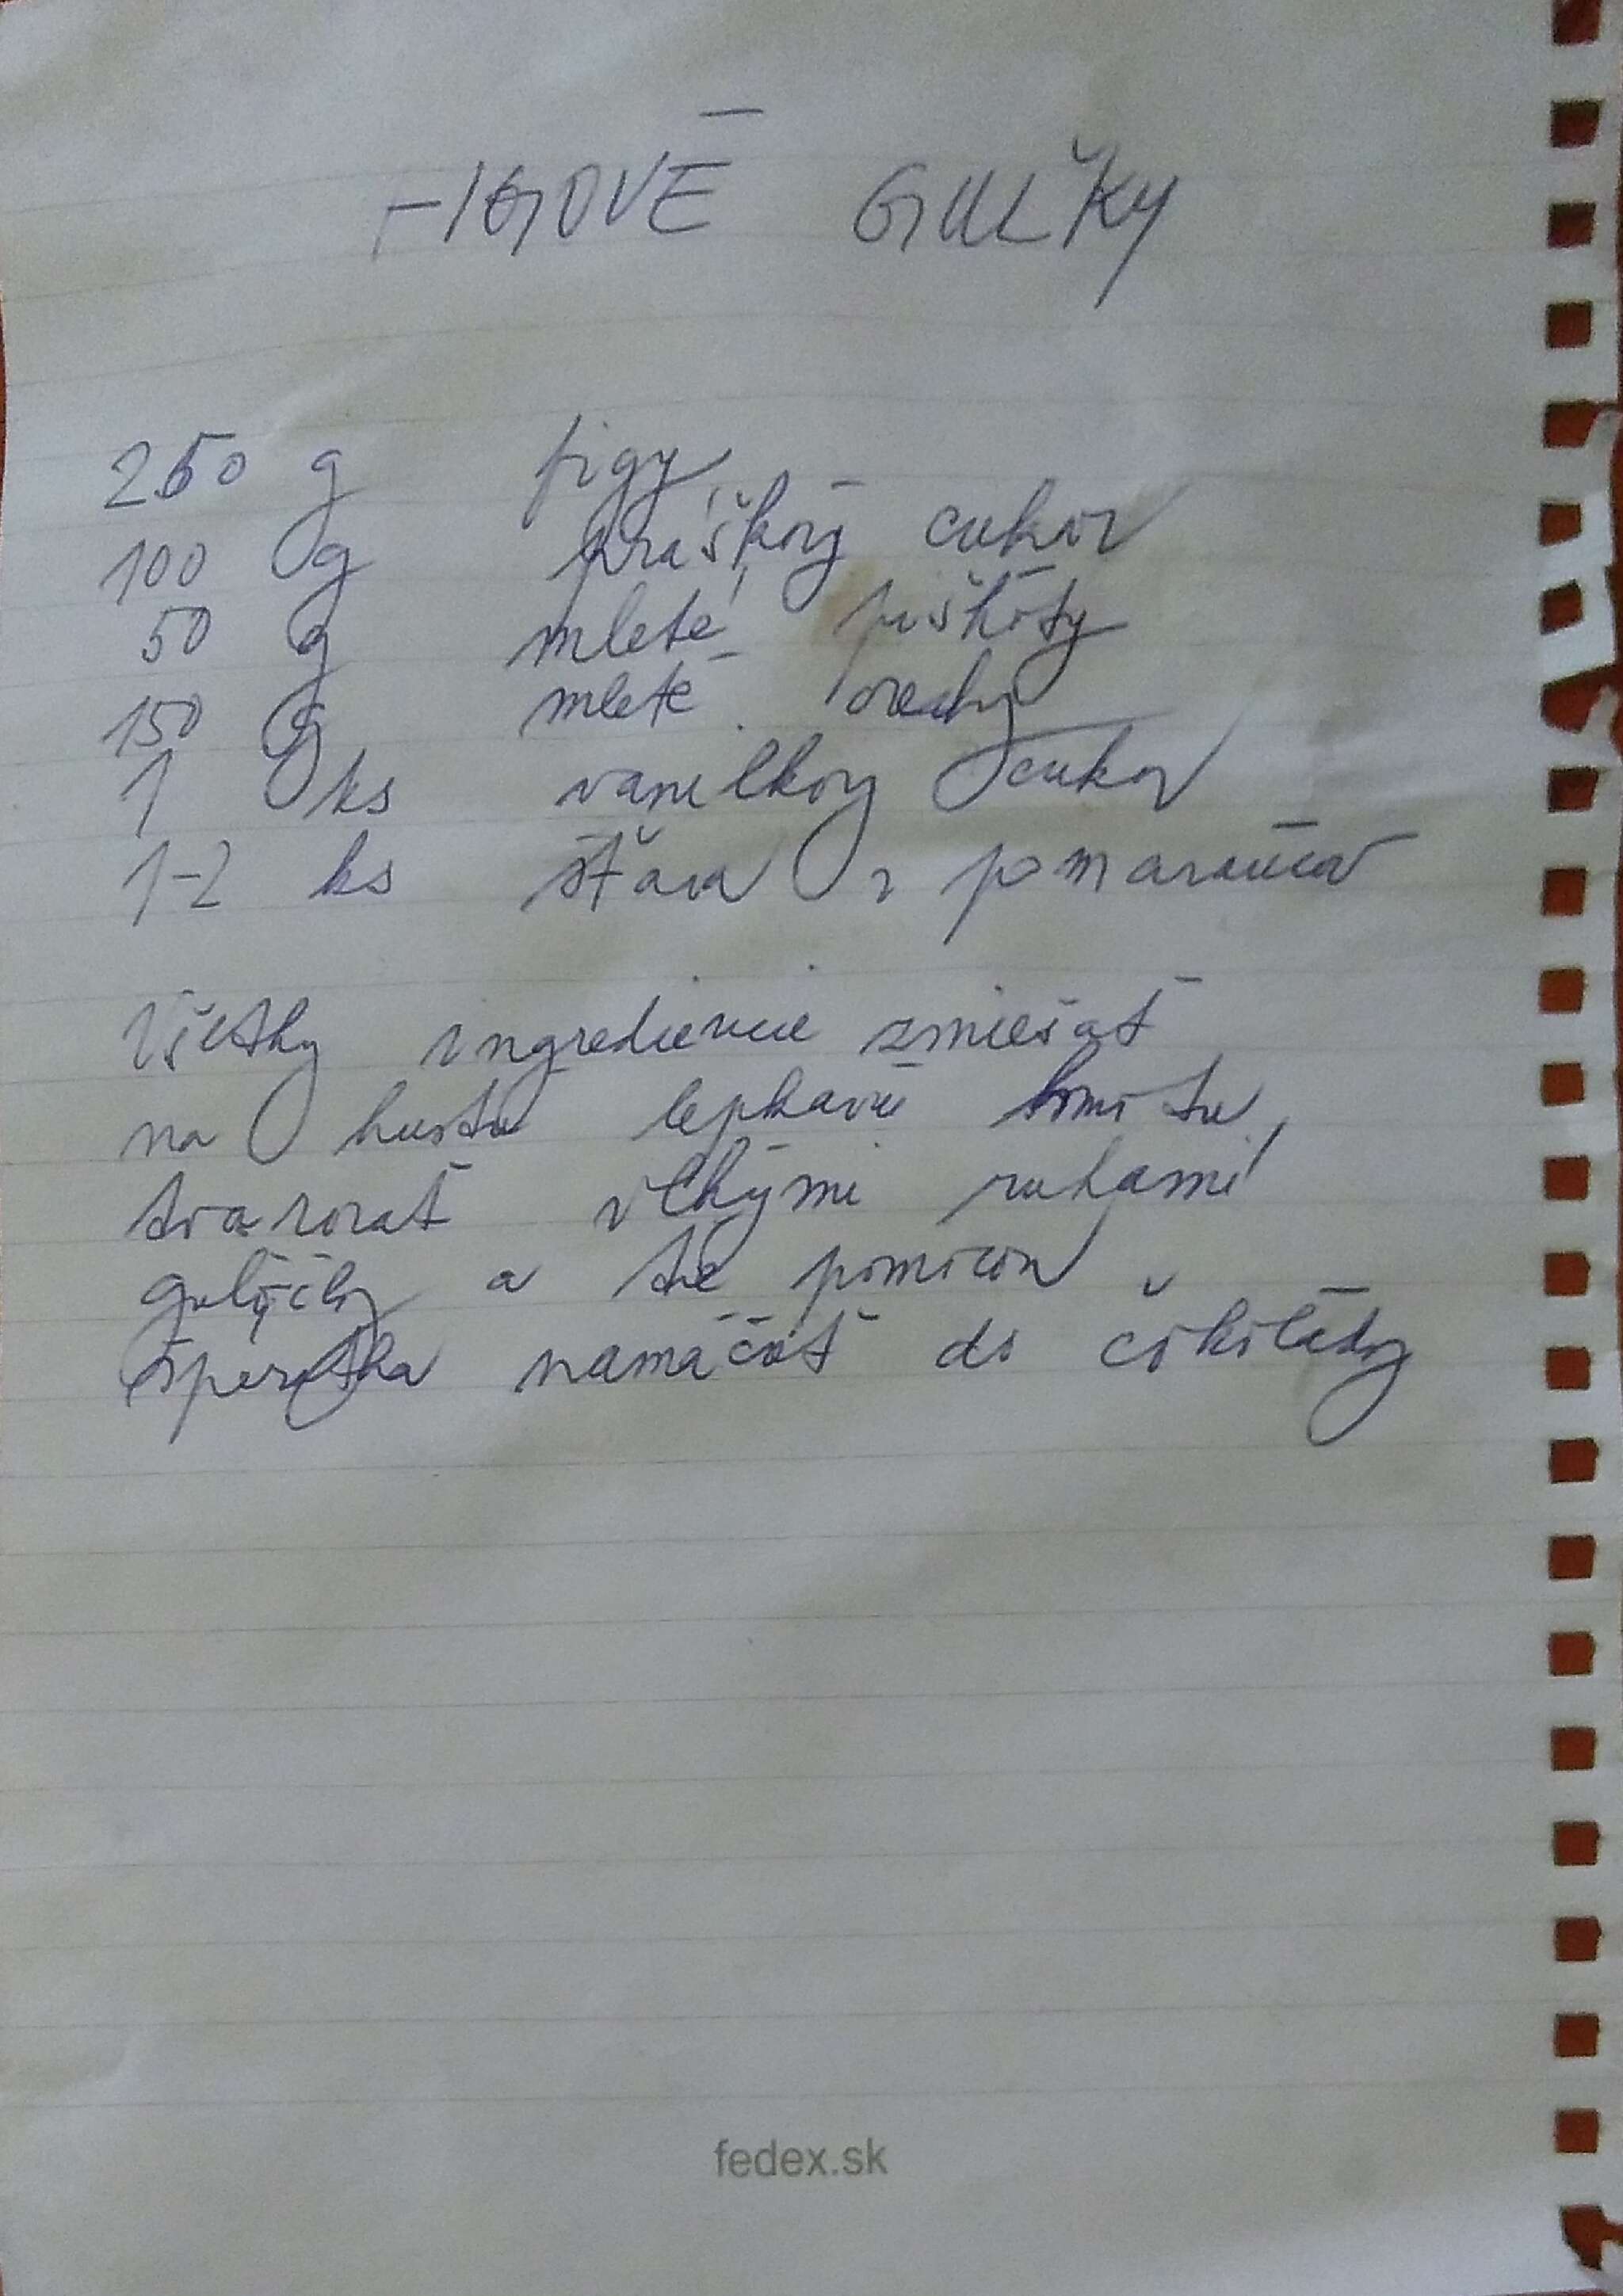 FIGOVÉ GUĽKY
250 g figy
100 g práškový cukor
50 g mleté piškóty
150 g mleté orechy
1 ks vanilkový cukor
1-2 ks šťava z pomarančov
Všetky ingrediencie zmiešať
na hustú lepkavú hmotu,
tvarovať vlhkými rukami
guľôčky a tie pomocou
špáratka namáčať do čokolády
fedex.sk